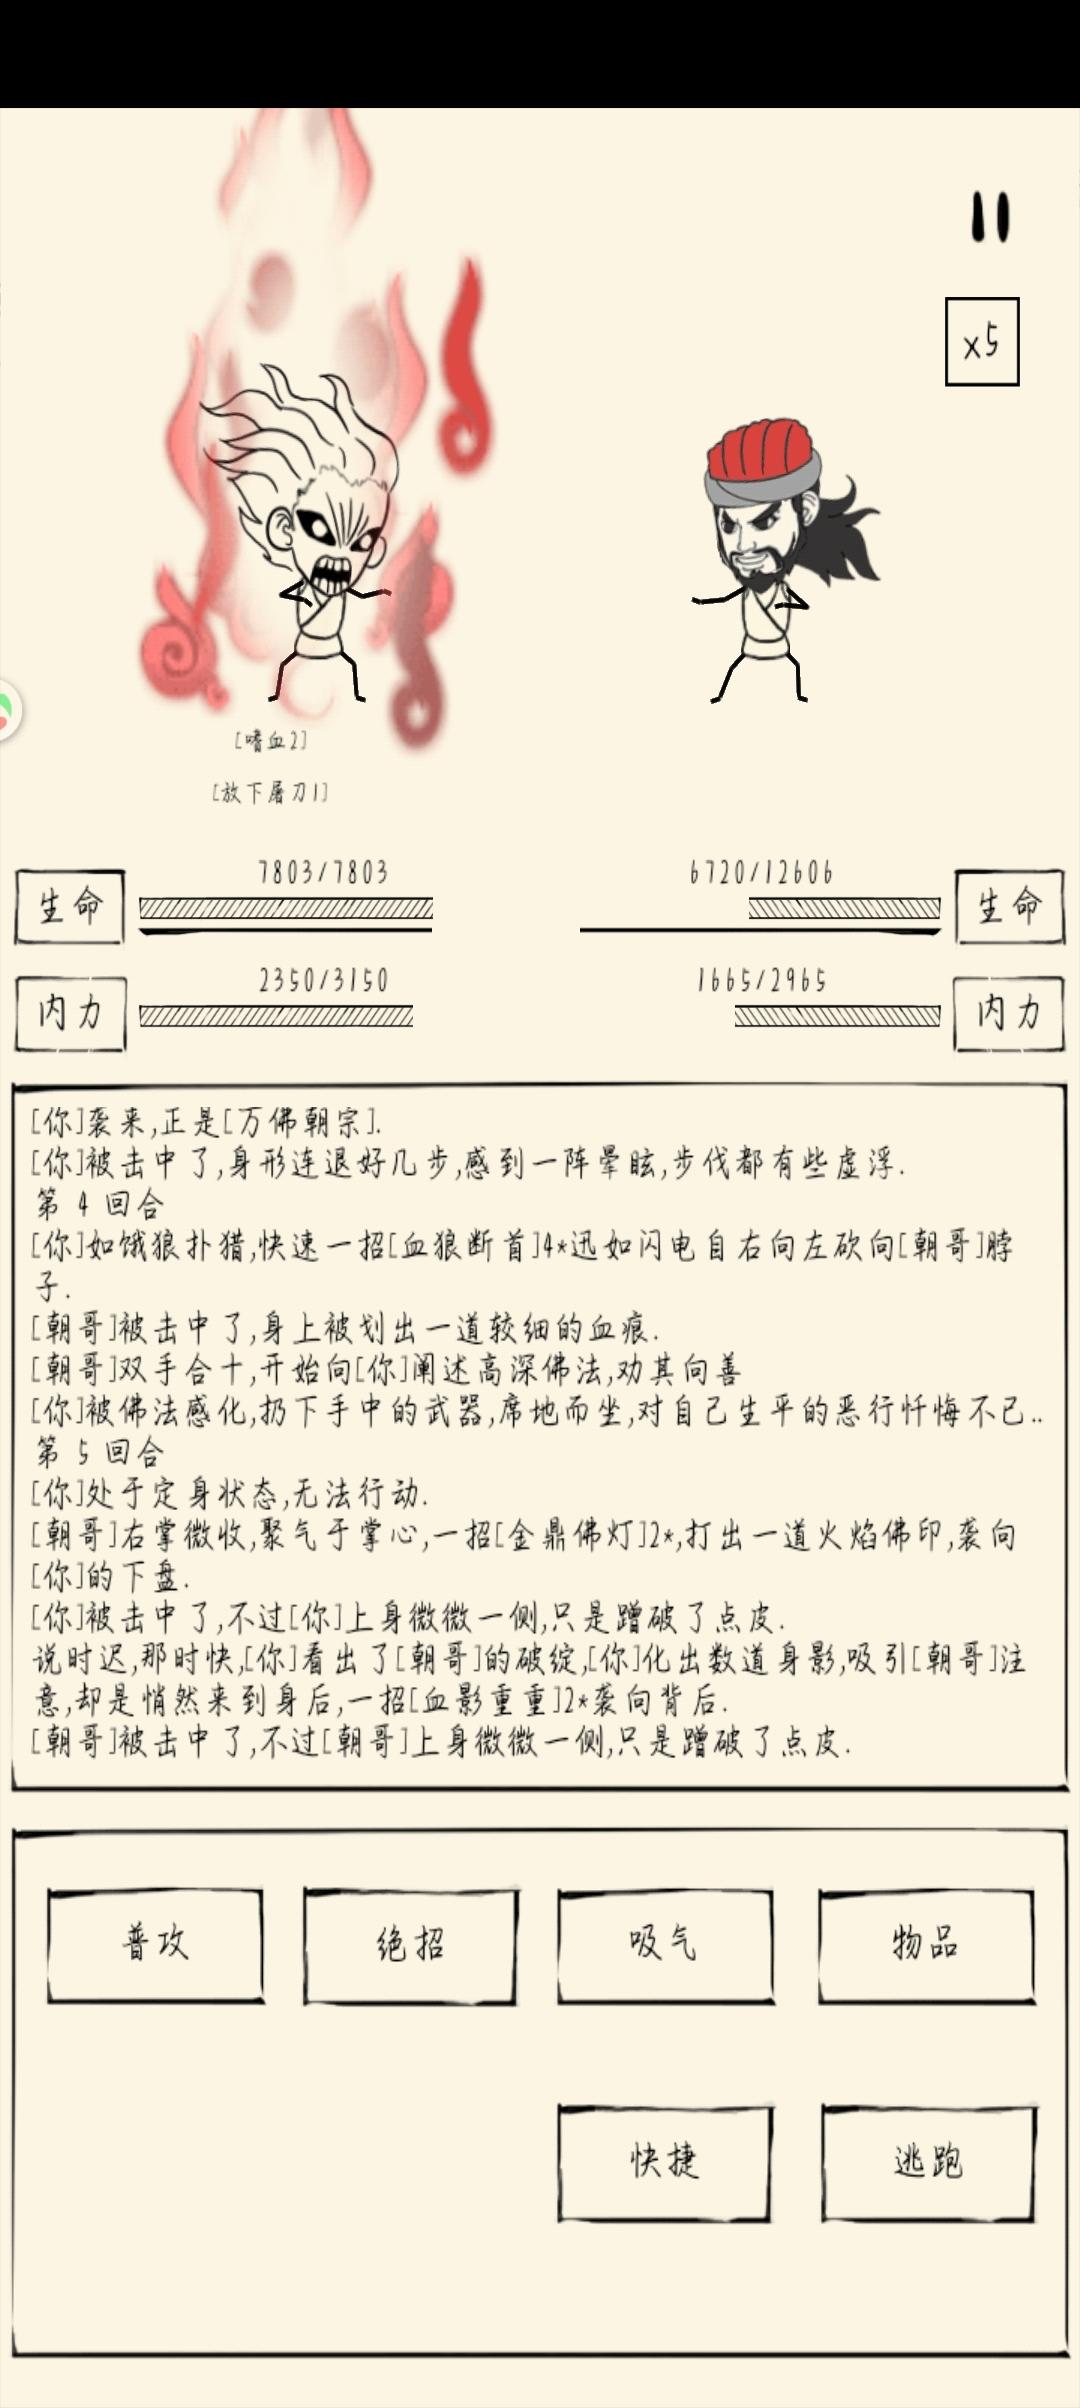 x5
[嗜血2]
[放下屠刀1]
7803/7803
6720/12606
生命
生命
2350/3150
1665/2965
内力
内力
[你]袭来,正是[万佛朝宗].
[你]被击中了,身形连退好几步,感到一阵晕眩,步伐都有些虚浮.
第 4 回合
[你]如饿狼扑猎,快速一招[血狼断首]4*迅如闪电自右向左砍向[朝哥]脖
子.
[朝哥]被击中了,身上被划出一道较细的血痕.
[朝哥]双手合十,开始向[你]阐述高深佛法,劝其向善
[你]被佛法感化,扔下手中的武器,席地而坐,对自己生平的恶行忏悔不已..
第 5 回合
[你]处于定身状态,无法行动.
[朝哥]右掌微收,聚气于掌心,一招[金鼎佛灯]2*,打出一道火焰佛印,袭向
[你]的下盘.
[你]被击中了,不过[你]上身微微一侧,只是蹭破了点皮.
说时迟,那时快,[你]看出了[朝哥]的破绽,[你]化出数道身影,吸引[朝哥]注
意,却是悄然来到身后,一招[血影重重]2*袭向背后.
[朝哥]被击中了,不过[朝哥]上身微微一侧,只是蹭破了点皮.
普攻
绝招
吸气
物品
快捷
逃跑